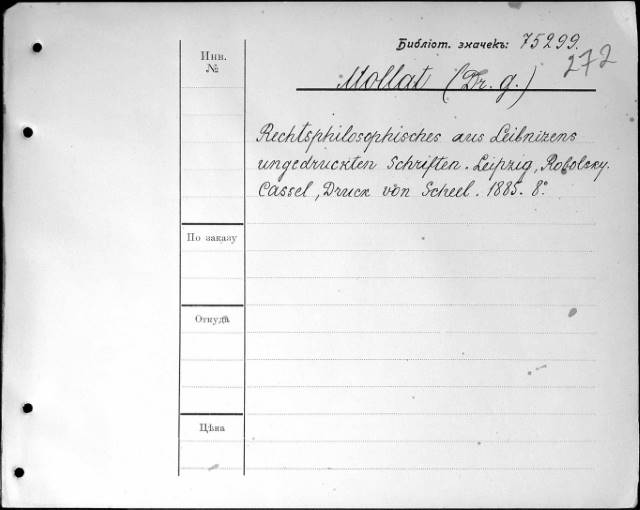 Библіот. значекъ: 75299.
272
Инв.
№
Mollat (Dr. G.)
Rechtsphilosophisches aus Leibnizens
ungedruckten Schriften. Leipzig, Robolsky.
Cassel, Druck von Scheel. 1885. 8°
По заказу
Откуда
Цѣна